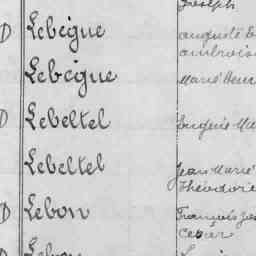 Joseph
D Lebègue Auguste
Ambroise
Lebègue Marie Hen
D Lebeltel Eugénie Ma
Lebeltel Jean Marie
Théodore
D Lebon François Jos
César
Lebon